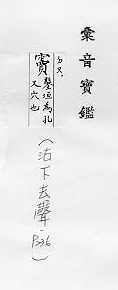 彙音寶鑑
ㄉㄡˋ
竇 鑿垣為孔
又穴也
(沽下去聲)